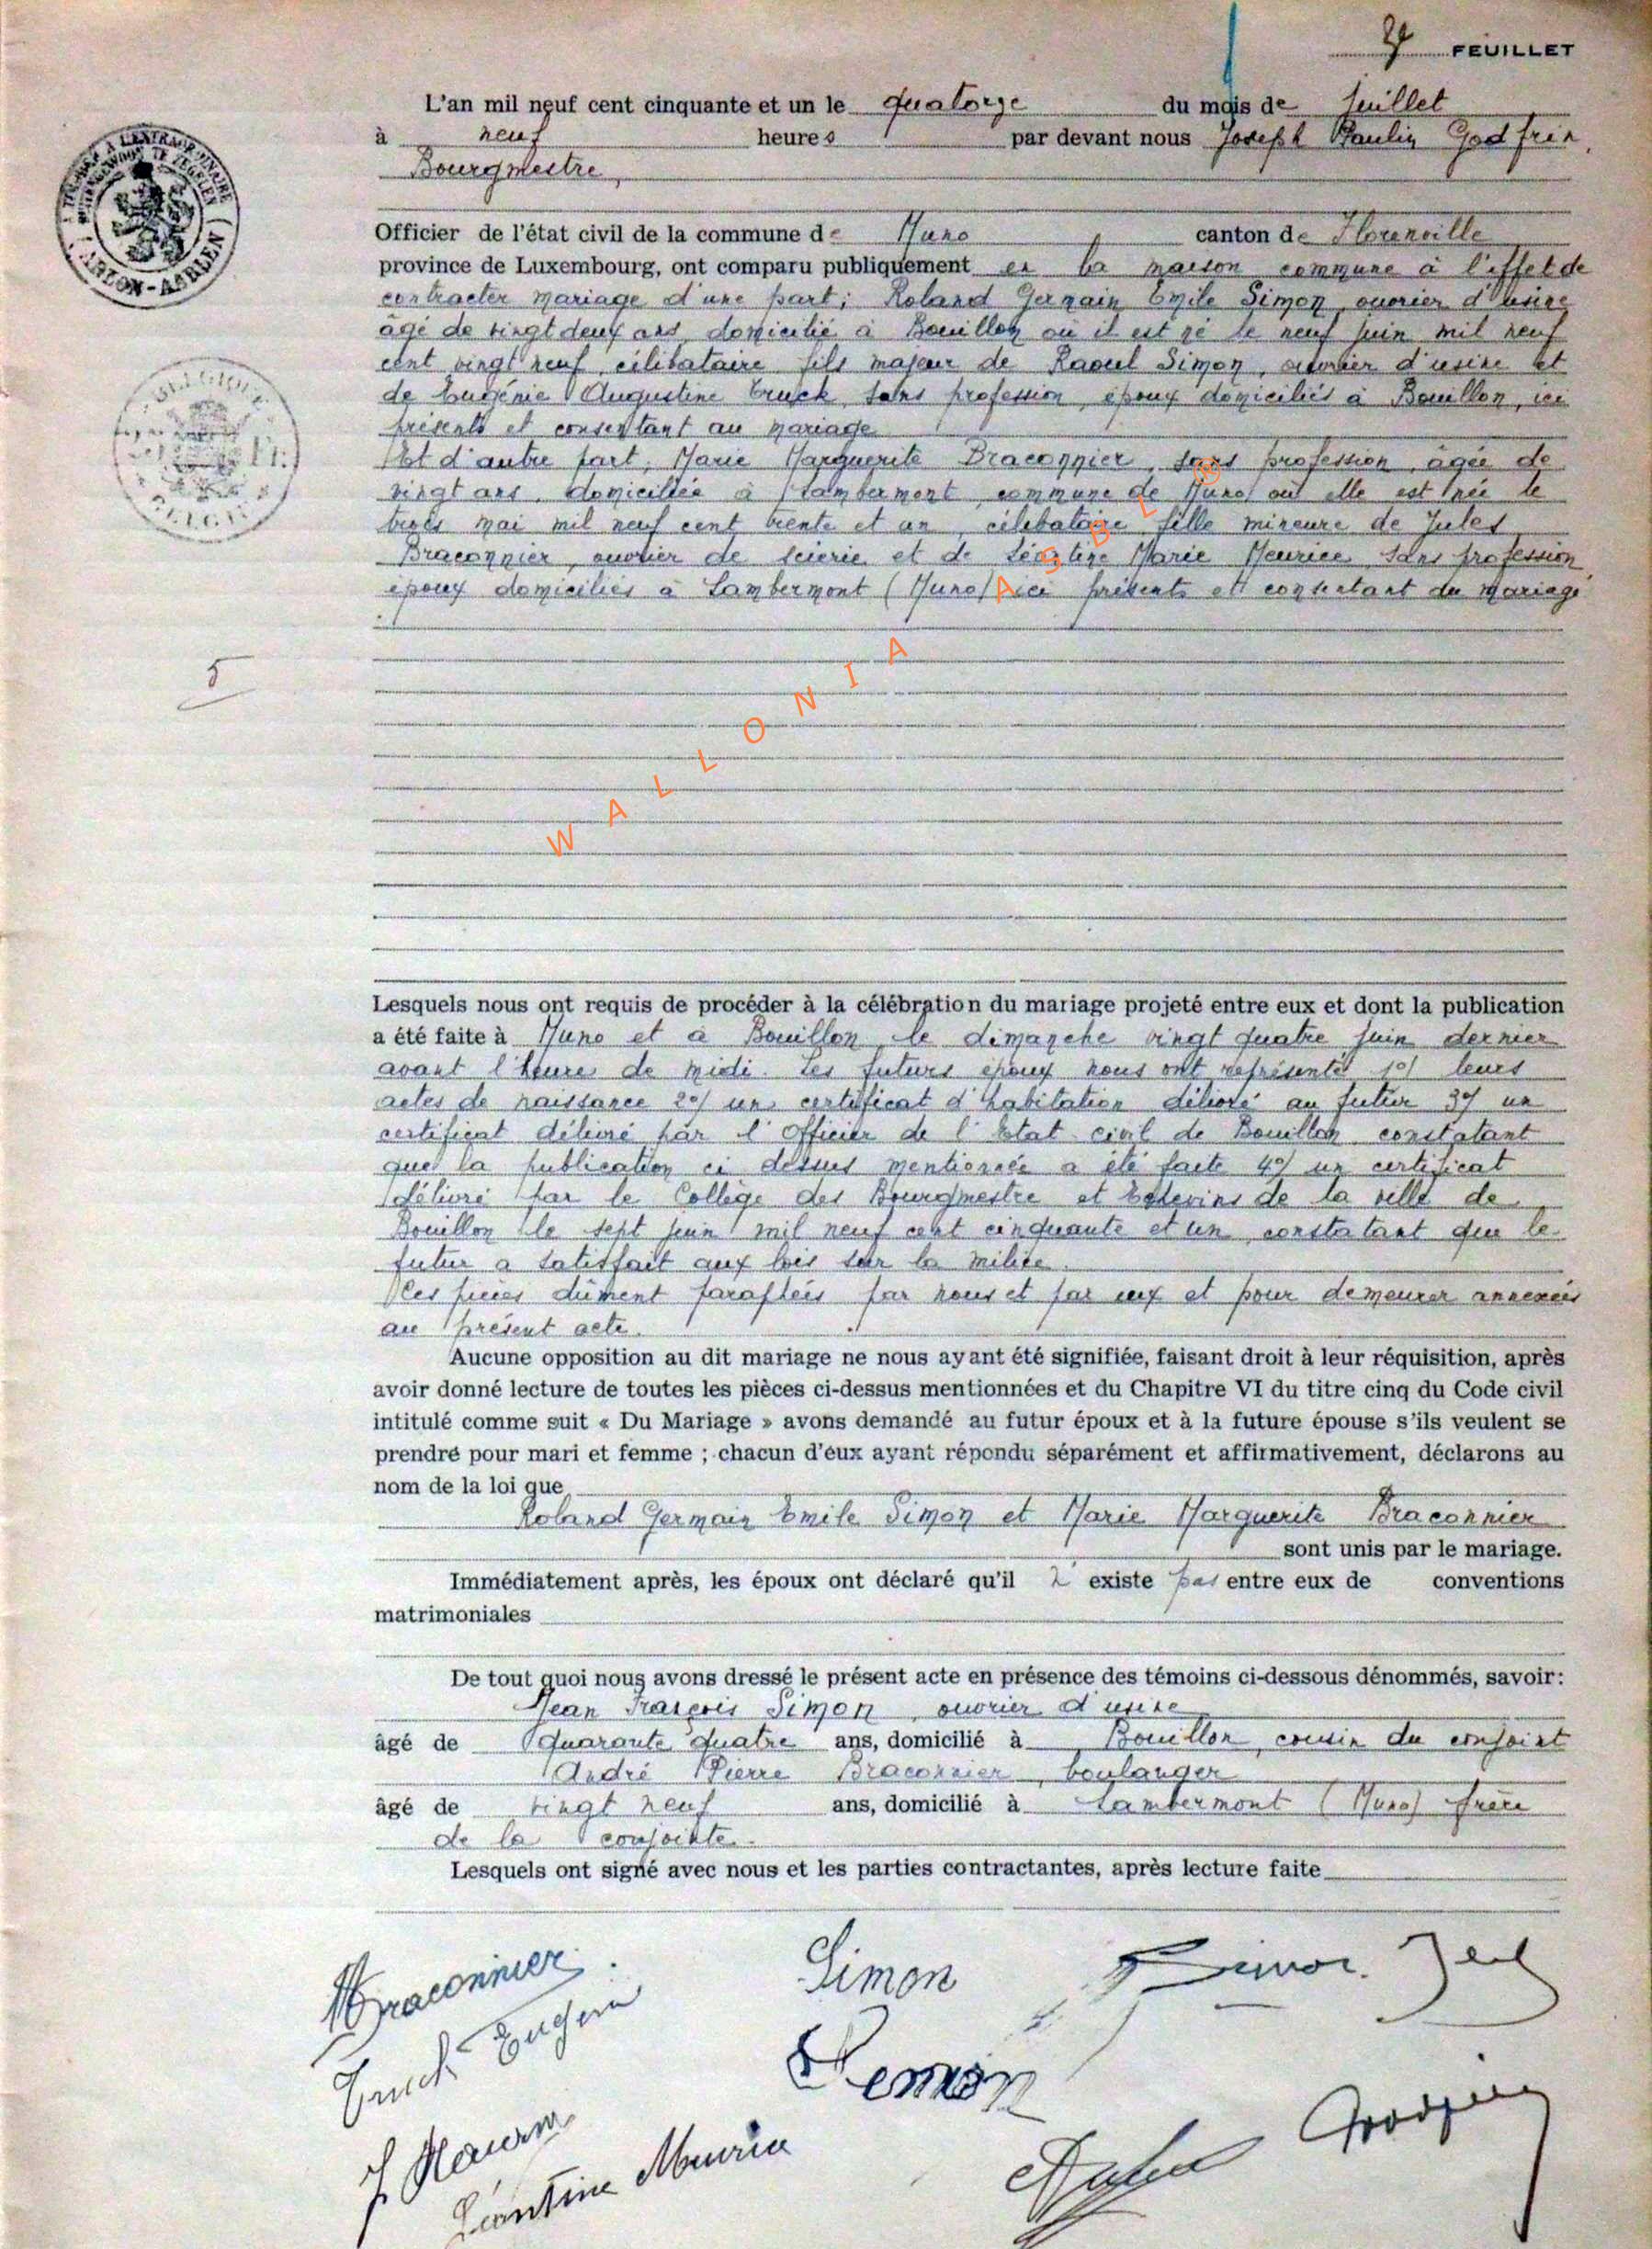 FEUILLET
L'an mil neuf cent cinquante et un le quatorze du mois de juillet
à neuf heures par devant nous Joseph Paulin Godfrin,
Bourgmestre,
Officier de l'état civil de la commune de Muno canton de Florenville
province de Luxembourg, ont comparu publiquement en la maison commune à l'effet de
contracter mariage d'une part; Roland Germain Emile Simon, ouvrier d'usine
âgé de vingt deux ans, domicilié à Bouillon où il est né le neuf juin mil neuf
cent vingt neuf, célibataire fils majeur de Raoul Simon, ouvrier d'usine et
de Eugénie Augustine Cruck, sans profession, époux domiciliés à Bouillon, ici
présents et consentant au mariage
Et d'autre part; Marie Marguerite Braconnier, sans profession, âgée de
vingt ans, domiciliée à Lambermont, commune de Muno où elle est née le
mai mil neuf cent trente et un, célibataire fille mineure de Jules
Braconnier, ouvrier de scierie et de Léontine Marie Meurice sans profession,
époux domiciliés à Lambermont (Muno) ici présents et consentant au mariage
5
WALLONIA ASBL ®
Lesquels nous ont requis de procéder à la célébration du mariage projeté entre eux et dont la publication
a été faite à Muno et à Bouillon, le dimanche vingt quatre juin dernier
avant l'heure de midi. Les futurs époux nous ont représenté 1°/ leurs
actes de naissance 2°/ un certificat d'habitation délivré au futur 3°/ un
certificat délivré par l'Officier de l'Etat civil de Bouillon constatant
que la publication ci dessus mentionnée a été faite 4°/ un certificat
délivré par le Collège des Bourgmestre et Echevins de la ville de
Bouillon le sept juin mil neuf cent cinquante et un, constatant que le
futur a satisfait aux lois sur la milice.
Ces pièces dûment paraphées par nous et par eux et pour demeurer annexées
au présent acte.
Aucune opposition au dit mariage ne nous ayant été signifiée, faisant droit à leur réquisition, après
avoir donné lecture de toutes les pièces ci-dessus mentionnées et du Chapitre VI du titre cinq du Code civil
intitulé comme suit « Du Mariage » avons demandé au futur époux et à la future épouse s'ils veulent se
prendre pour mari et femme ; chacun d'eux ayant répondu séparément et affirmativement, déclarons au
nom de la loi que
Roland Germain Emile Simon et Marie Marguerite Braconnier
sont unis par le mariage.
Immédiatement après, les époux ont déclaré qu'il n' existe pas entre eux de conventions
matrimoniales
De tout quoi nous avons dressé le présent acte en présence des témoins ci-dessous dénommés, savoir:
Jean François Simon, ouvrier d'usine
âgé de quarante quatre ans, domicilié à Bouillon, cousin du conjoint
André Pierre Braconnier, boulanger
âgé de vingt neuf ans, domicilié à Lambermont (Muno) frère
de la conjointe.
Lesquels ont signé avec nous et les parties contractantes, après lecture faite
Braconnier
Simon
Simon
Cruck Eugénie
Simon
Léontine Meurice